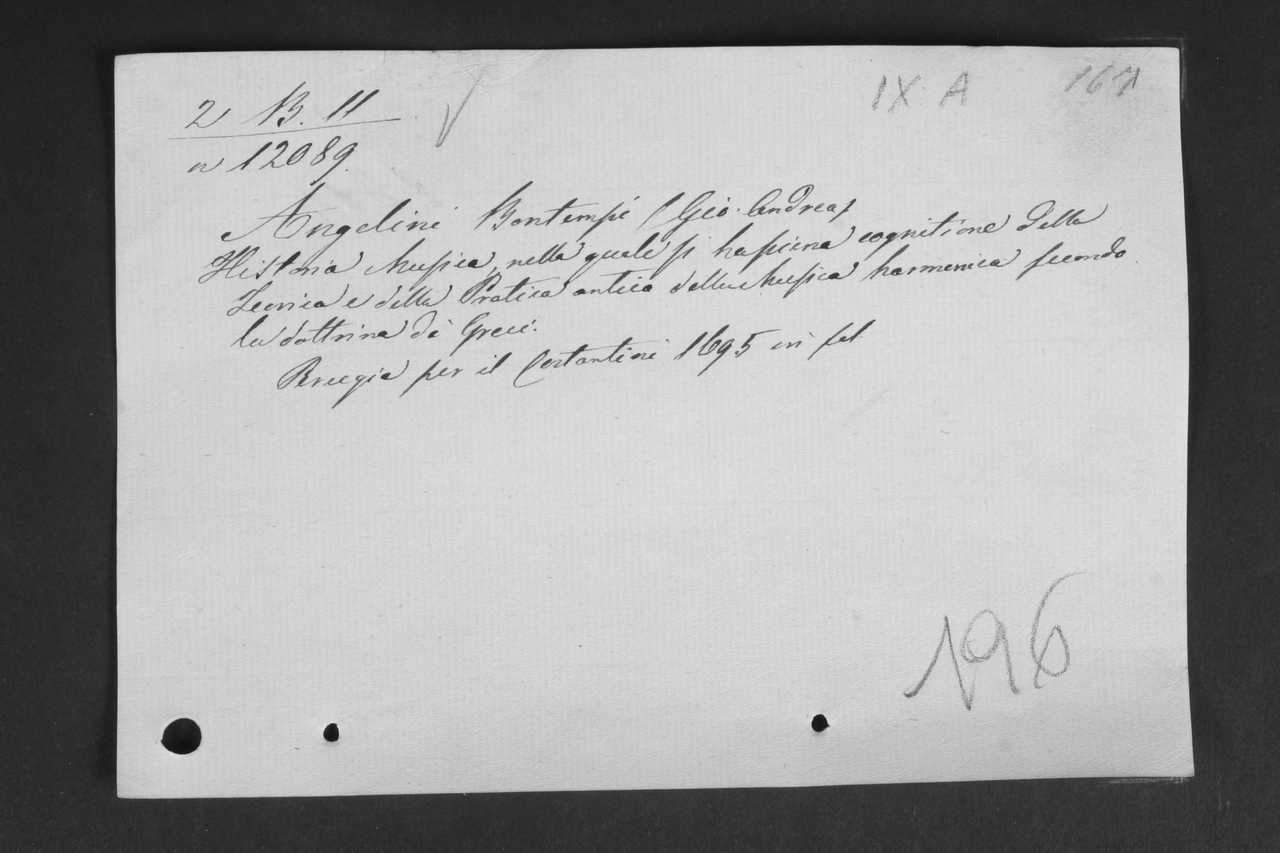 2 B. 11
IX A
167
n 12089.
Angelini Bontempi (Gio. Andrea)
Historia Musica, nella quale si ha piena cognitione della
Teorica e della Pratica antica della Musica harmonica secondo
la dottrina de Greci.
Perugia per il Costantini 1695 in fol
196